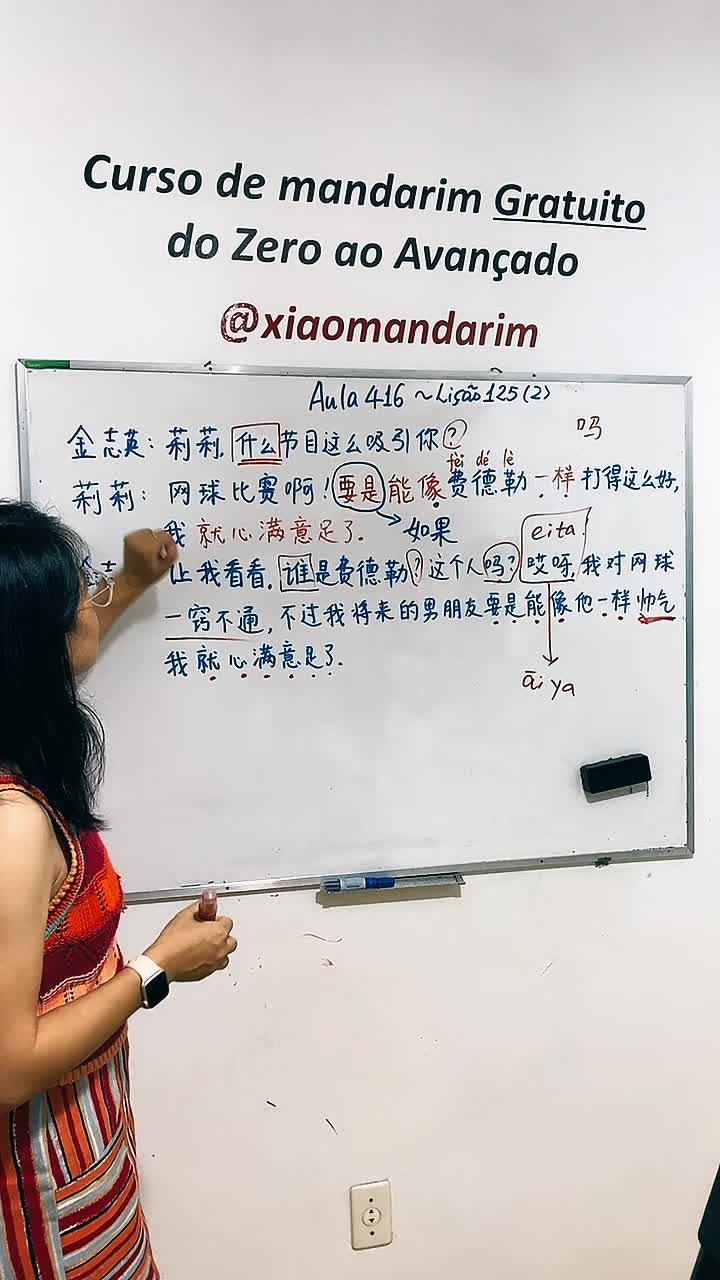 Curso de mandarim Gratuito
do Zero ao Avançado
@xiaomandarim
Aula 416 ~ Lição 125 (2)
金志英: 莉莉, 什么节目这么吸引你?
吗
fèi dé lè
莉莉: 网球比赛啊! 要是能像费德勒一样打得这么好,
我就心满意足了.
如果
eita!
让我看看, 谁是费德勒? 这个人吗? 哎呀, 我对网球
一窍不通, 不过我将来的男朋友要是能像他一样帅气
我就心满意足了.
āi ya